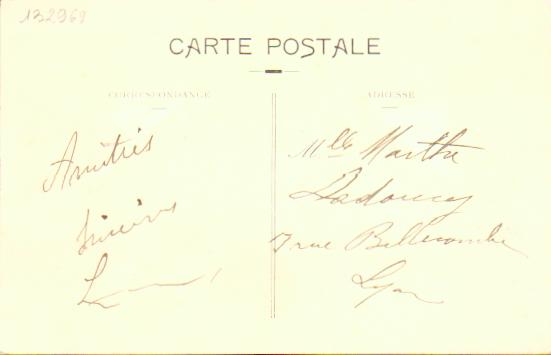 132969
CARTE POSTALE
CORRESPONDANCE
ADRESSE
Amitiés
Sincères
Mlle Marthe
7 rue Bellecombe
Lyon